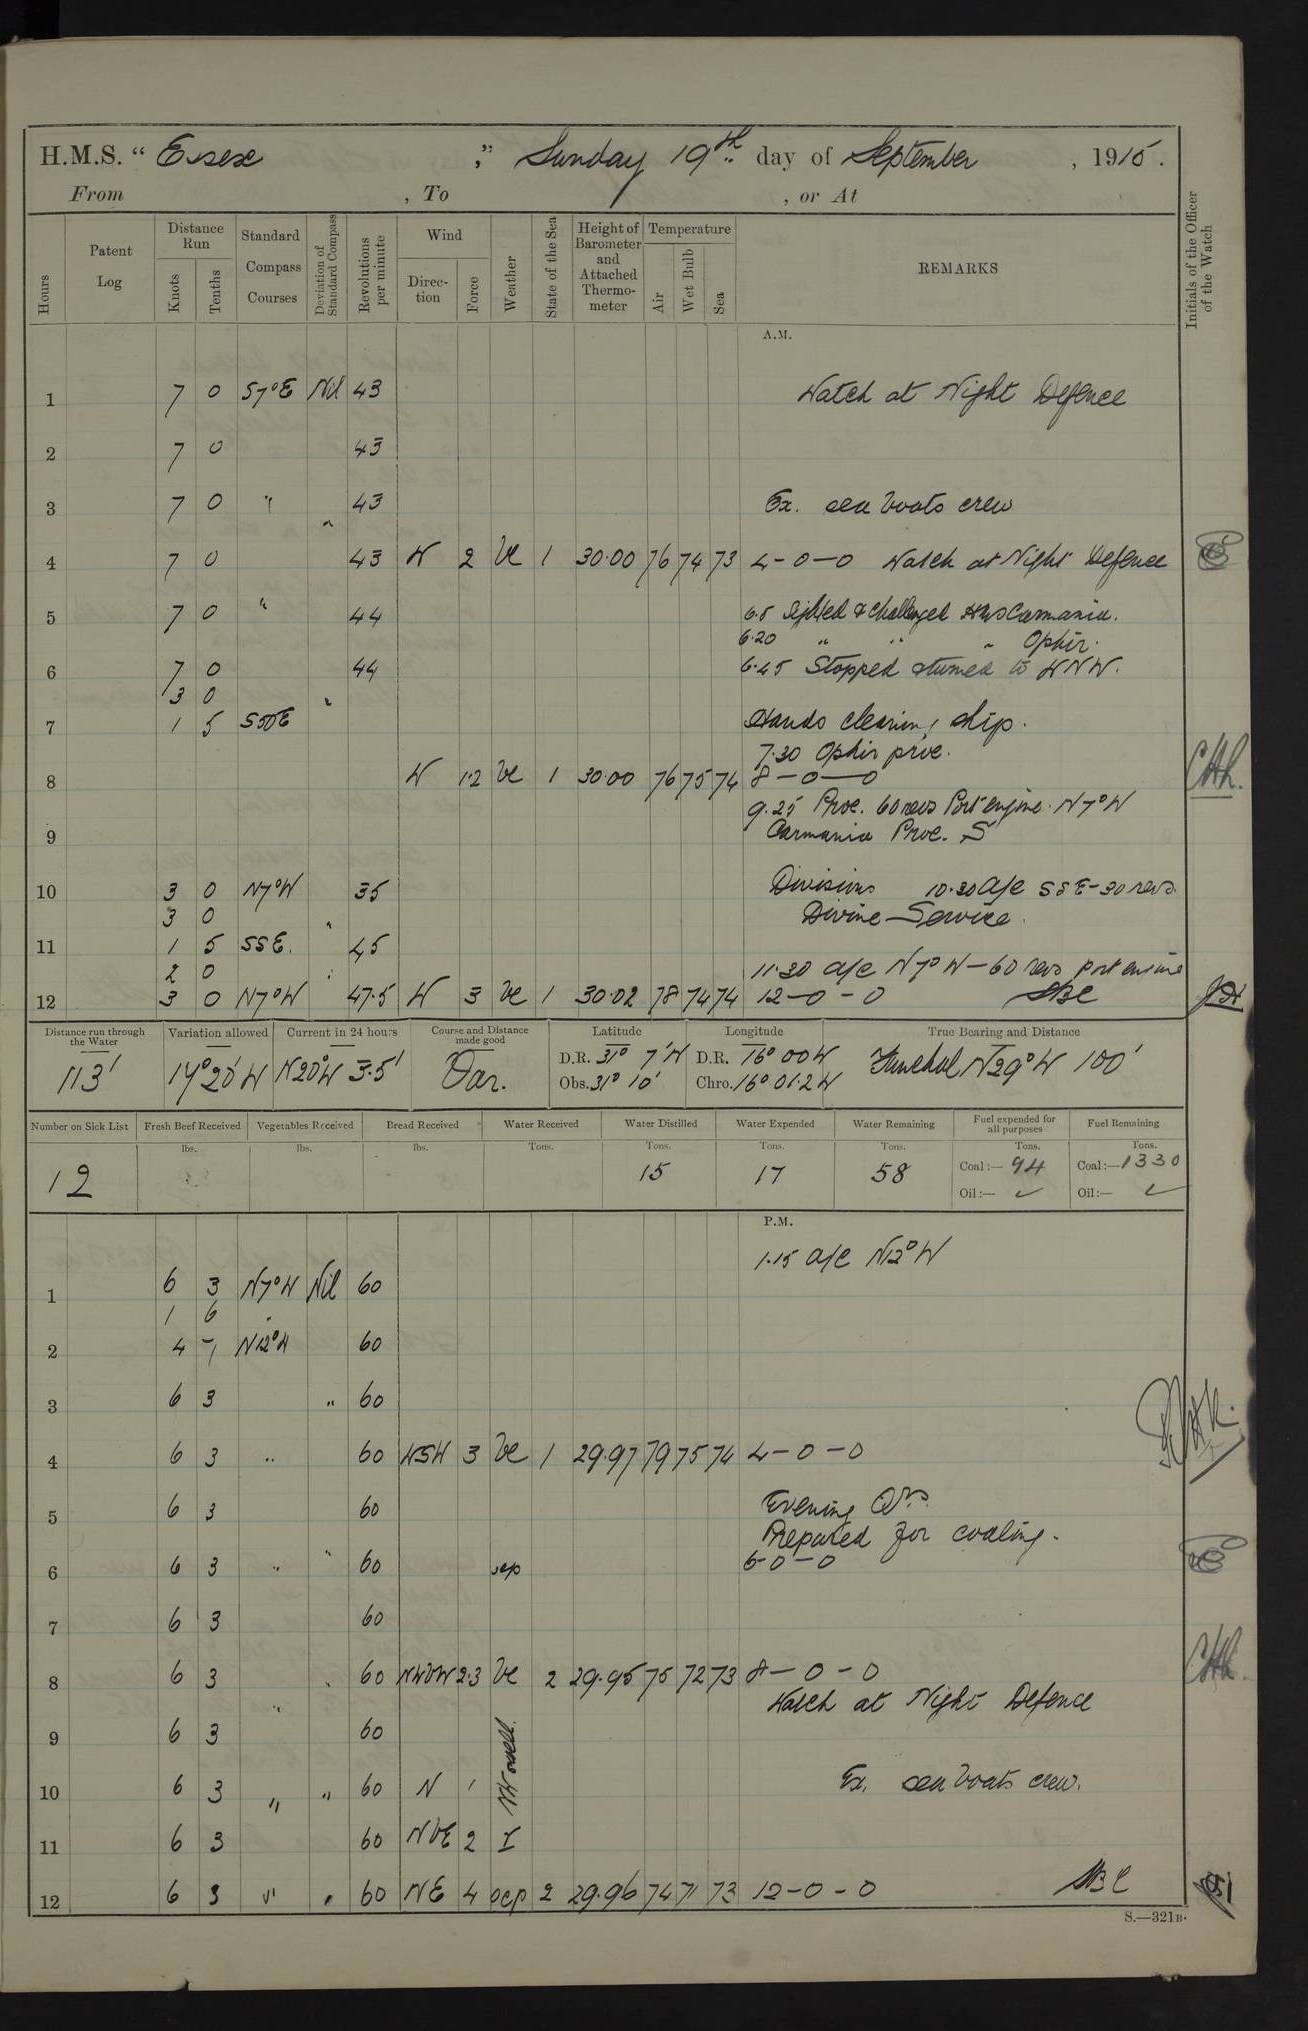 H.M.S. " Essex ," Sunday 19th day of September , 1915.
From , To , or At
Hours Patent Log Distance Run Knots Tenths Standard Compass Courses Deviation of Standard Compass Revolutions per minute Wind Direction Force Weather State of the Sea Height of Barometer and Attached Thermometer Temperature Air Wet Bulb Sea REMARKS Initials of the Officer of the Watch
A.M.
1 7 0 S7°E Nil 43 Watch at Night Defence
2 7 0 43
3 7 0 " 43 Ex. sea boats crew
4 7 0 43 W 2 bc 1 30.00 76 74 73 4-0-0 Watch at Night Defence
5 7 0 " 44 6.5 Sighted & challenged HMS Carmania.
6.20 " " " Ophir.
6 7 0 44 6.45 Stopped & turned to WNW.
3 0 "
7 1 5 Hands cleaning ship.
7.30 Ophir proc.
8 W 1.2 bc 1 30.00 76 75 74 8-0-0
9.25 Proc. 60 revs Port engine. N7°W
9 Carmania Proc. S
10 3 0 N7°W 35 Divisions 10.30 a/c SSE-30 revs
3 0 " Divine Service.
11 1 5 SSE. 45
2 0 11.30 a/c N7°W-60 revs port engine
12 3 0 N7°W 47.5 W 3 bc 1 30.02 78 74 74 12-0-0
Distance run through the Water Variation allowed Current in 24 hours Course and Distance made good Latitude Longitude True Bearing and Distance
113' 17°20'W N20°W 3.5' Var. D.R. 31° 7'N D.R. 16° 00W Funchal N29°W 100'
Obs. 31° 10' Chro. 16° 01.2W
Number on Sick List Fresh Beef Received Vegetables Received Bread Received Water Received Water Distilled Water Expended Water Remaining Fuel expended for all purposes Fuel Remaining
lbs. lbs. lbs. Tons. Tons. Tons. Tons. Tons. Tons.
12 15 17 58 Coal:— 94 Coal:—1330
Oil:— ✓ Oil:— ✓
P.M.
1.15 a/c N12°W
1 6 3 N7°W Nil 60
1 6
2 4 7 N12°W 60
3 6 3 " 60
4 6 3 " 60 WSW 3 bc 1 29.97 79 75 74 4-0-0
5 6 3 60 Evening Qrs.
Prepared for coaling.
6 6 3 " " 60 6-0-0
7 6 3 60
8 6 3 " 60 NWbW 2.3 bc 2 29.95 75 72 73 8-0-0
" Watch at Night Defence
9 6 3 60 NW swell
10 6 3 " " 60 N 1 Ex. sea boats crew.
11 6 3 60 NbE 2
12 6 3 " " 60 NE 4 ocp 2 29.96 74 71 73 12-0-0
S.—321B.